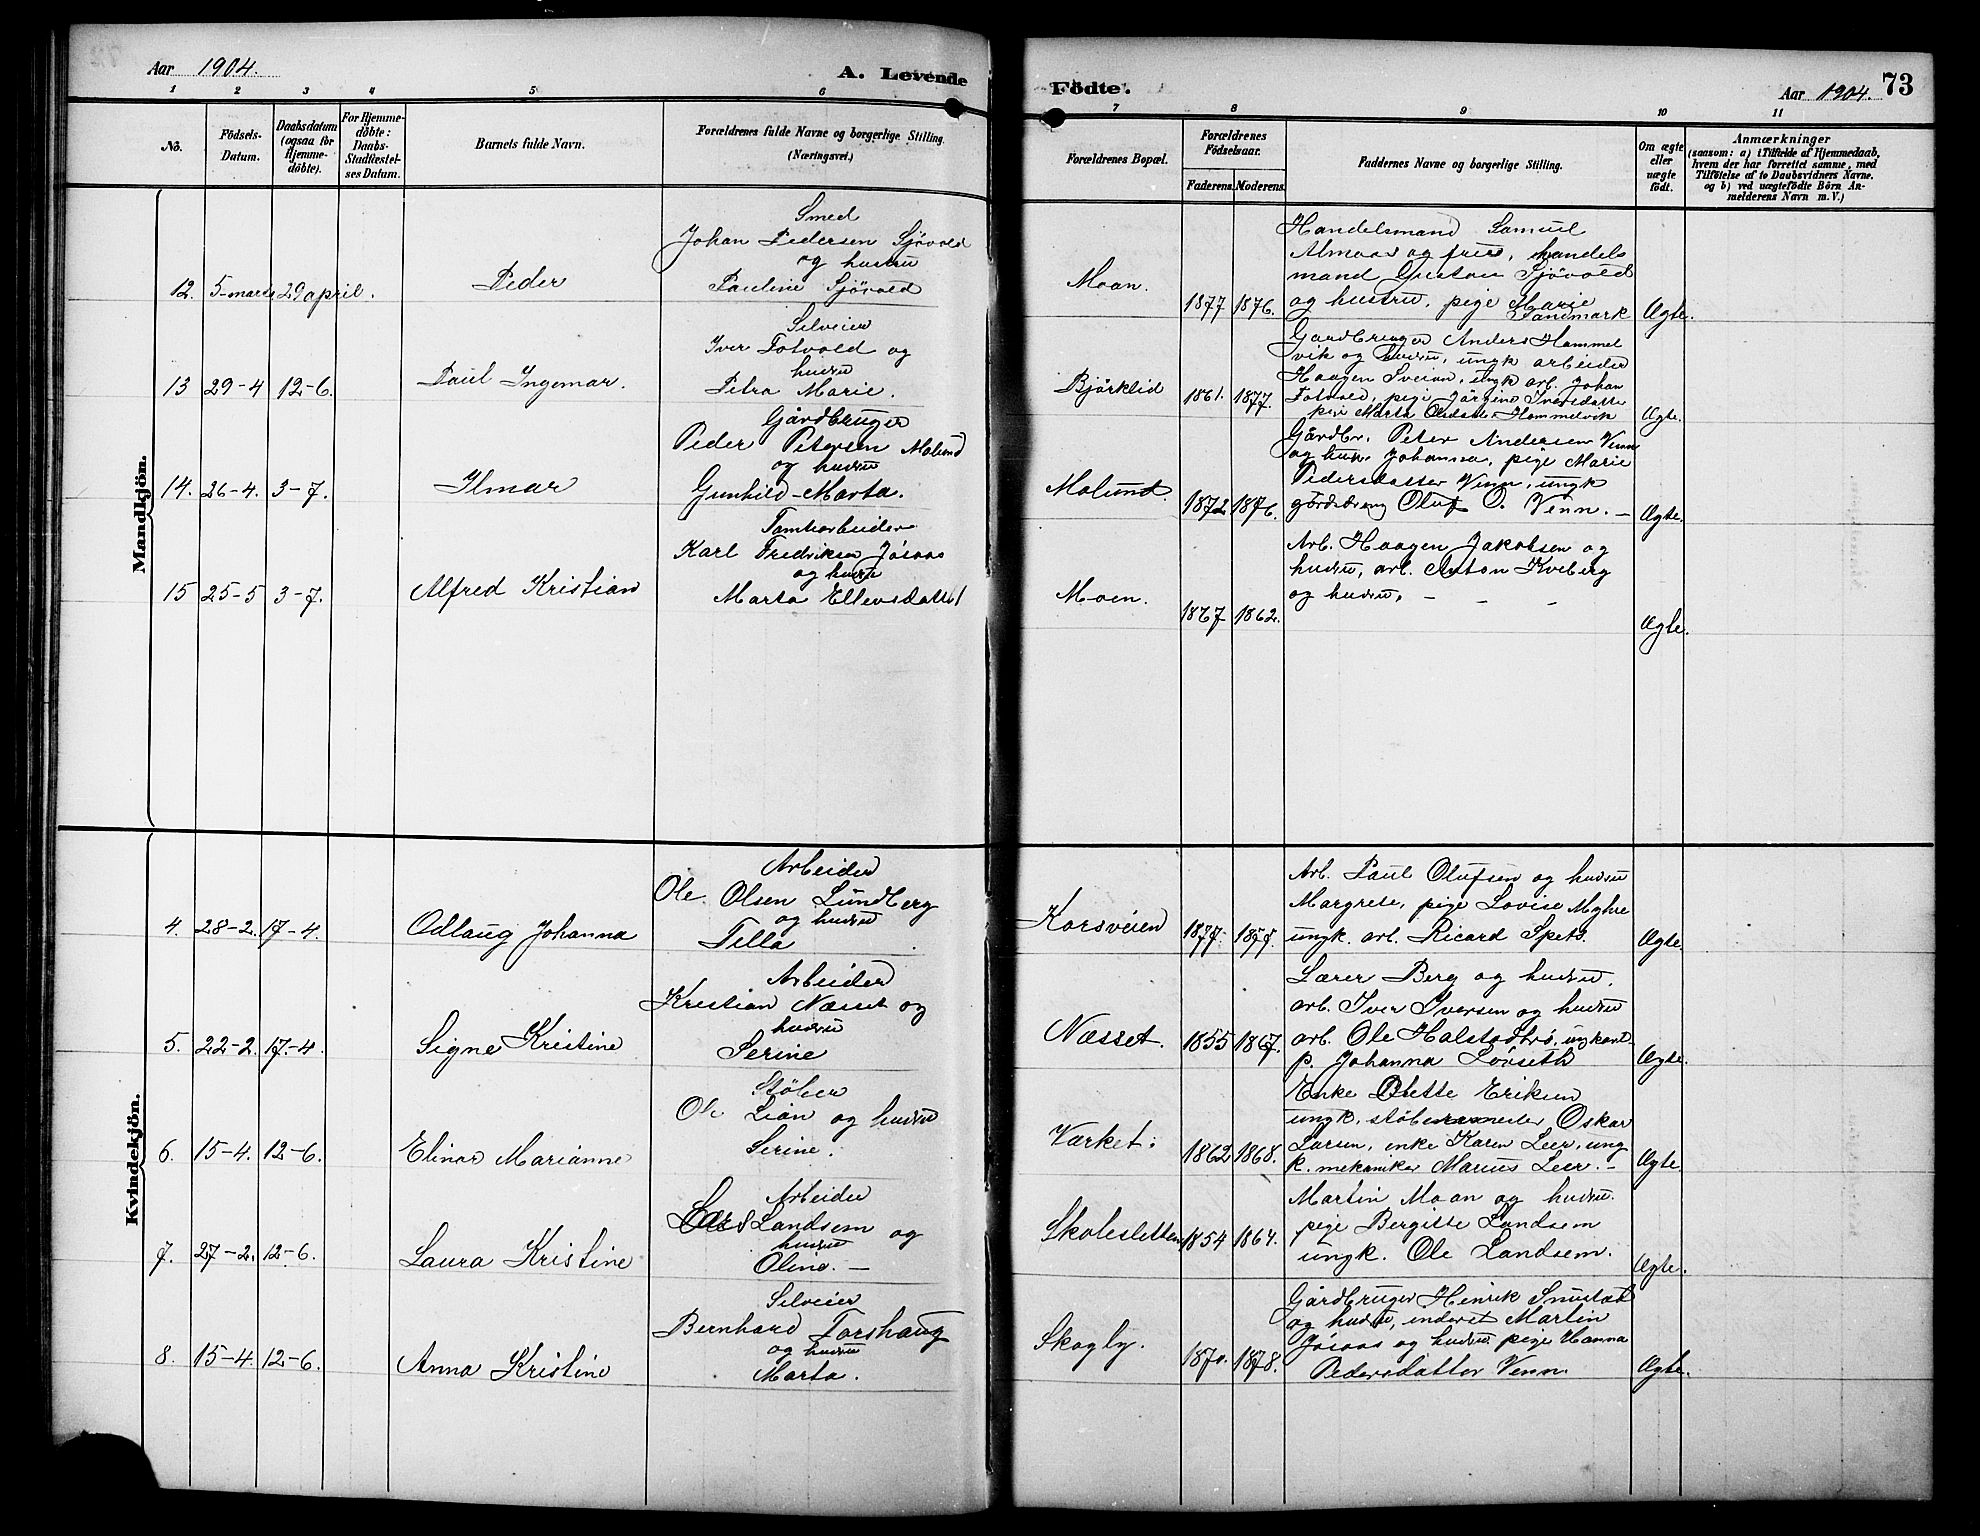 Aar 1904.
A. Levende
1 2 3 4 5 6
No. Födsels-Datum. Daabsdatum (ogsaa for Hjemme-döbte). For Hjemme-döbte: Daabs-Stadfæstel-ses Datum. Barnets fulde Navn. Forældrenes fulde Navne og borgerlige Stilling. (Næringsvei.)
Mandkjön.
Smed
Johan Pedersen Sjövold
og hustru
12. 5-marts 29 april. Peder Pauline Sjövold
Selveier
Iver Fotvold og
hustru
13 29-4 12-6. Paul Ingemar. Petra Marie.
Gårdbruger
Peder Petersen Molund
og hustru
14. 26-4. 3-7. Ilmar Gunhild-Marta.
Tomtearbeider
Karl Fredriksen Jösaas
og hustru
15 25-5 3-7. Alfred Kristian Marta Ellevsdatter
Kvindekjön.
Arbeider
Ole Olsen Lundberg
og hustru
4. 28-2. 17-4. Odlaug Johanna Tella
Arbeider
Kristian Næsset og
hustru
5. 22-2. 17-4. Signe Kristine Serine
Støber
Ole Lian og hustru
6. 15-4. 12-6. Elinor Marianne Serine.
Arbeider
Lars Landsem og
hustru
7. 27-2. 12-6. Laura Kristine Oline. —
Selveier
Bernhard Torshaug
og hustru
8. 15-4. 12-6. Anna Kristine Marta.
Födte.
Aar 1904. 73
7 8 9 10 11
Forældrenes Bopæl. Forældrenes Födselsaar. Faderens. Moderens. Faddernes Navne og borgerlige Stilling. Om ægte eller uægte födt. Anmærkninger
(saasom: a) i Tilfælde af Hjemmedaab, hvem der har forrettet samme, med Tilföielse af to Daabsvidners Navne. og b) ved uægtefödte Börn An-melderens Navn m. V.)
Handelsmand Samuel
Almaas og frue, handels
Moan. mand Gustav Sjövold
1877 1876. og hustru, pige Marie Landmark Ægte.
Gårdbruger Anders Hammel
vik og hustru, ungk arbeider
Bjørklid Haagen Sveian, ungk arb. Johan
1861. 1877. Fotvold, pige Jörgine Iversdatter
pige Marta Olsdatter Hommelvik Ægte.
Gårdbr. Peter Andersen Venn
og hustr. Johanna, pige Marie
Molund. Pedersdatter Venn, ungk
1872 1876. gårdsdreng Oluf O. Venn. — Ægte.
Arb. Haagen Jakobsen og
hustru, arb. Anton Kveberg
Moen. og hustru. - - -
1867 1862. Ægte.
Arb. Paul Olufsen og hustru
Korsveien Margrete, pige Lovise Myhre
1877. ungk. arb. Ricard Spets. Ægte.
Lærer Berg og hustru.
arb. Iver Iversen og hustru
Næsset. 1855 1867. arb. Ole Halstadtrø,
p. Johanna Løvseth Ægte.
Enke Eriksen
ungk. støbermester Oskar
Værket. Larsen, enke Karen Leer, ung
1862 1868. k. mekaniker Marius Leer. - Ægte.
Martin Moan og hustru.
Skolesletten pige Bergitte Landsem
1854 1864. ungk. Ole Landsem. Ægte.
Gårdbruger Henrik Snustad
og hustru, inderst Martin
Skogly. Jösaas og hustru pige Hanna
1870. 1878. Pedersdatter Venn. Ægte.